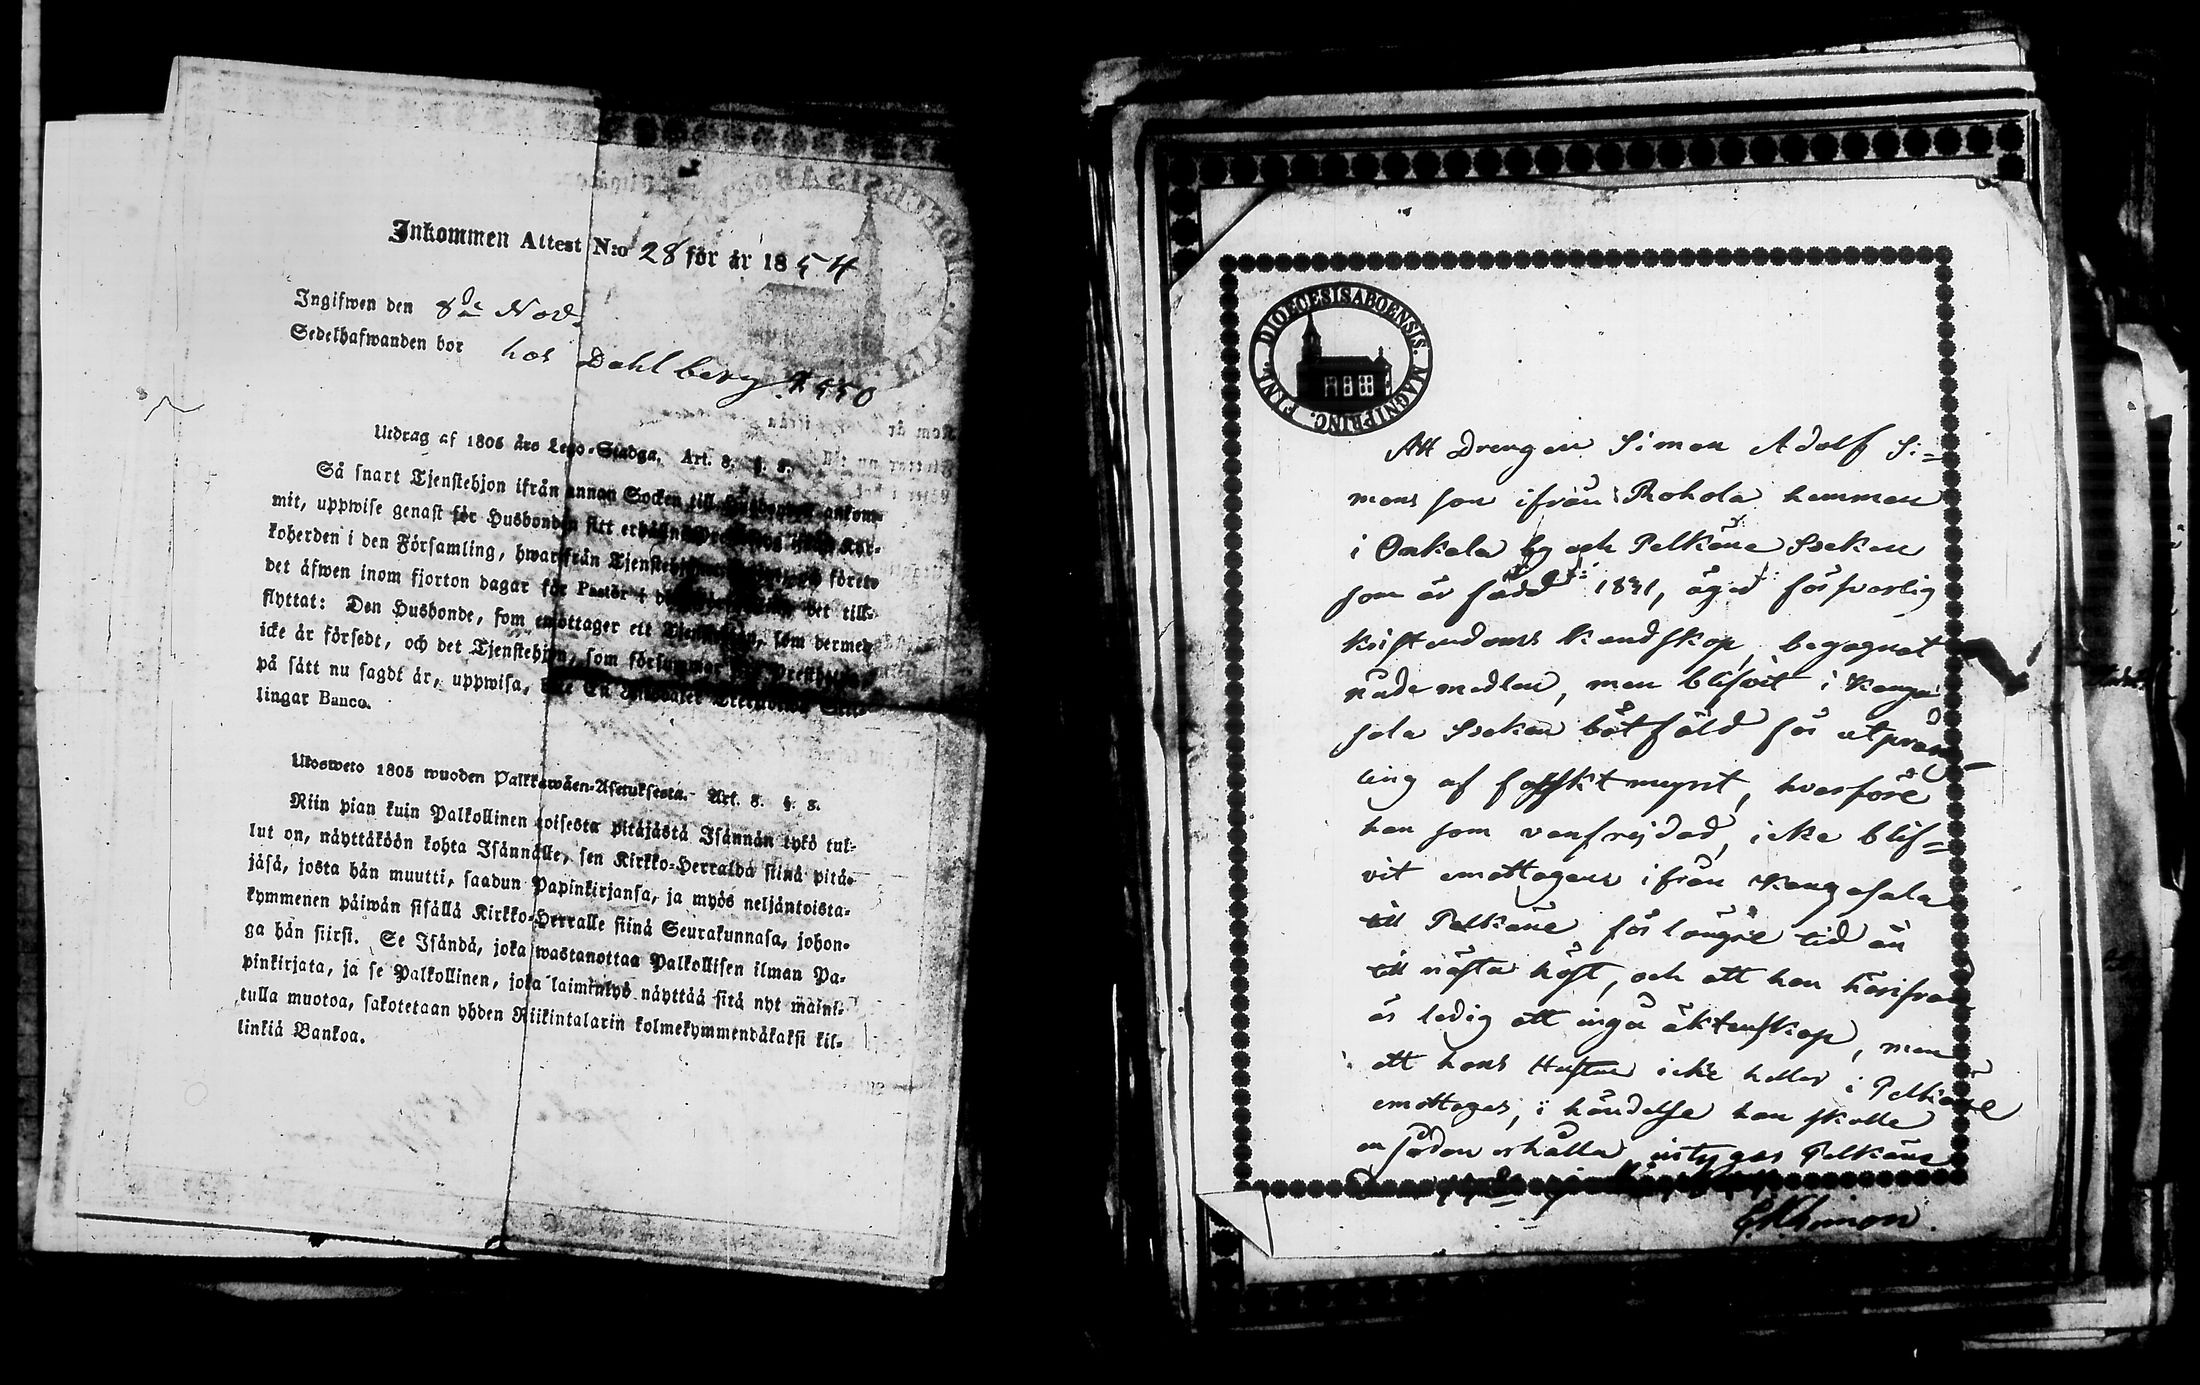 Inkommen Attest N:o 28 för år 1854
Ingifwen den 8de Nov.
Sedelhafwanden bor hos Dahlberg № 550
Utdrag af 1805 års Lego-Stadga. Art. 8. §. 8.
Så snart Tjenstehjon ifrån annan Socken till Husbonden ankom-
mit, uppwise genast för Husbonden sitt erhållna
koherden i den Församling, hwarifrån Tjenstehjonet förete
det äfwen inom fjorton dagar för Pastor i det till-
flyttat: Den Husbonde, som emottager ett Tjenstehjon, som dermed
icke är försedt, och det Tjenstehjon, som försummar
på sätt nu sagdt är, uppwisa,
lingar Banco.
Ulosweto 1805 wuoden Palkkawäen-Asetuksesta. Art. 8. §. 8.
Niin pian kuin Palkollinen toisesta pitäjästä Isännän tykö tul-
lut on, näyttäköön kohta Isännälle, sen Kirkko-Herralda siinä pitä-
jäsä, josta hän muutti, saadun Papinkirjansa, ja myös neljäntoista-
kymmenen päiwän sisällä Kirkko-Herralle siinä Seurakunnasa, johon-
ga hän siirsi. Se Isändä, joka wastanottaa Palkollisen ilman Pa-
pinkirjata, ja se Palkollinen, joka laiminlyö näyttää sitä nyt mainit-
tulla muotoa, sakotetaan yhden Riikintalarin kolmekymmendäkaksi kil-
linkiä Bankoa.
DIOECESIS ABOENSIS. MAGNI PRINC. FINL.
Att Drengen Simon Adolf Si=
mons son ifrån Rohola hemman
i Onkala by och Pelkäne Socken
som är född 1831, äger försvarlig
kristendoms kundskap, begagnat
nådemedlen, men blifvit i Kanga
sala Socken bötfäld för utpräng
ling af falskt mynt, hvarföre
han som vanfrejdad, icke blif=
vit emottagens ifrån Kangasala
till Pelkäne för längre tid än
till nästa höst, och att han härifrån
är ledig att ingå äktenskap, men
att hans Hustru icke heller i Pelkäne
emottages, i händelse han skulle
en sådan erhålla, intygas Pelkäne